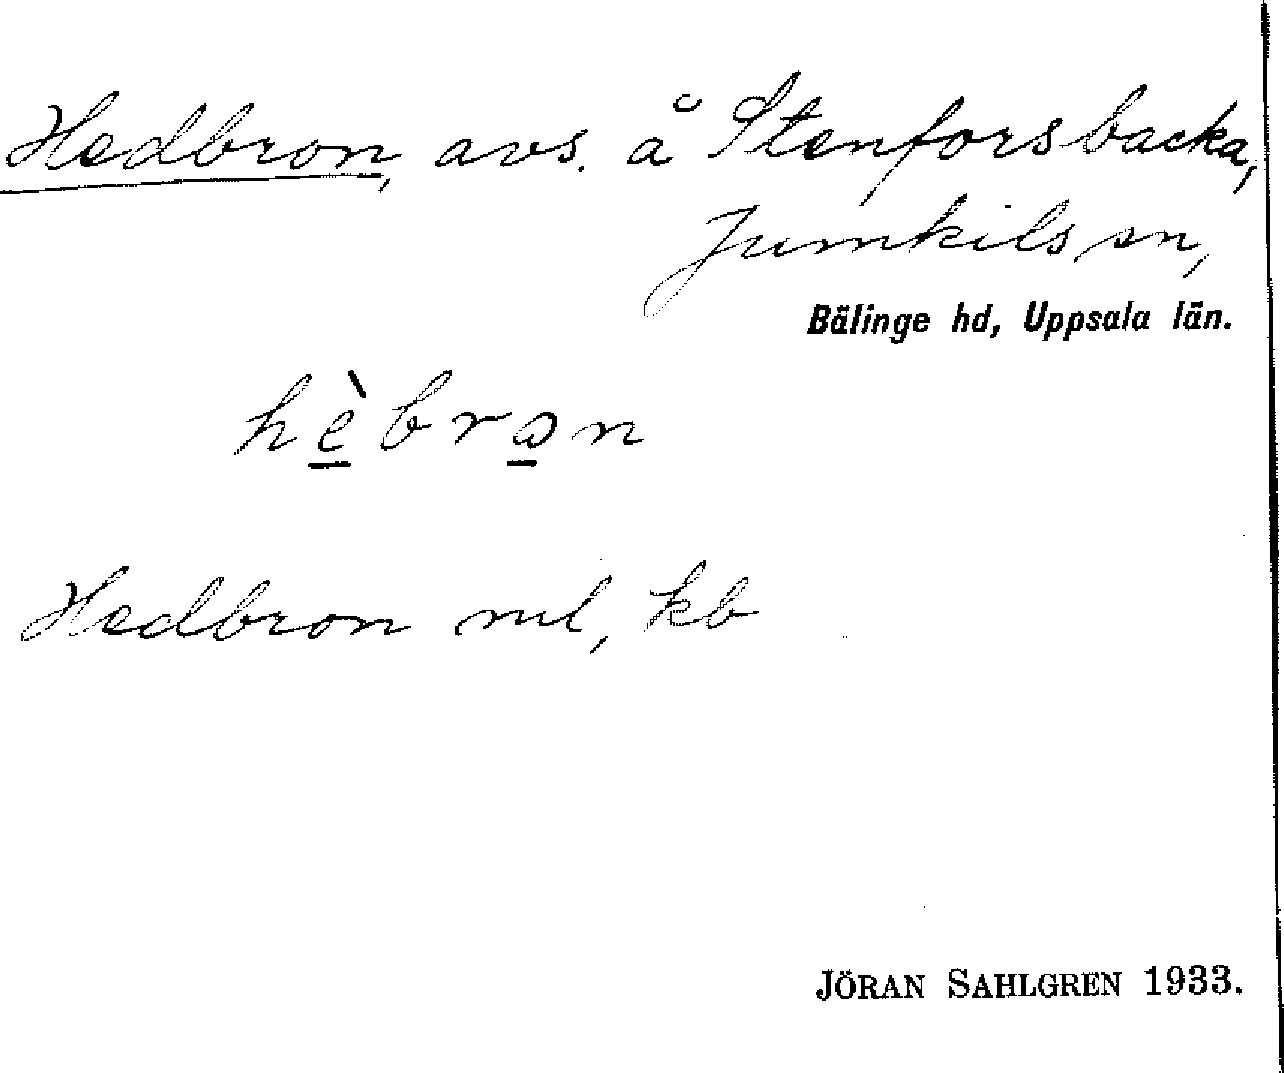 Hedbron, avs. å Stenforsbacka,
Jumkils sn,
Bälinge hd, Uppsala län.
hèbrɷn
Hedbron ml, kb
JÖRAN SAHLGREN 1933.